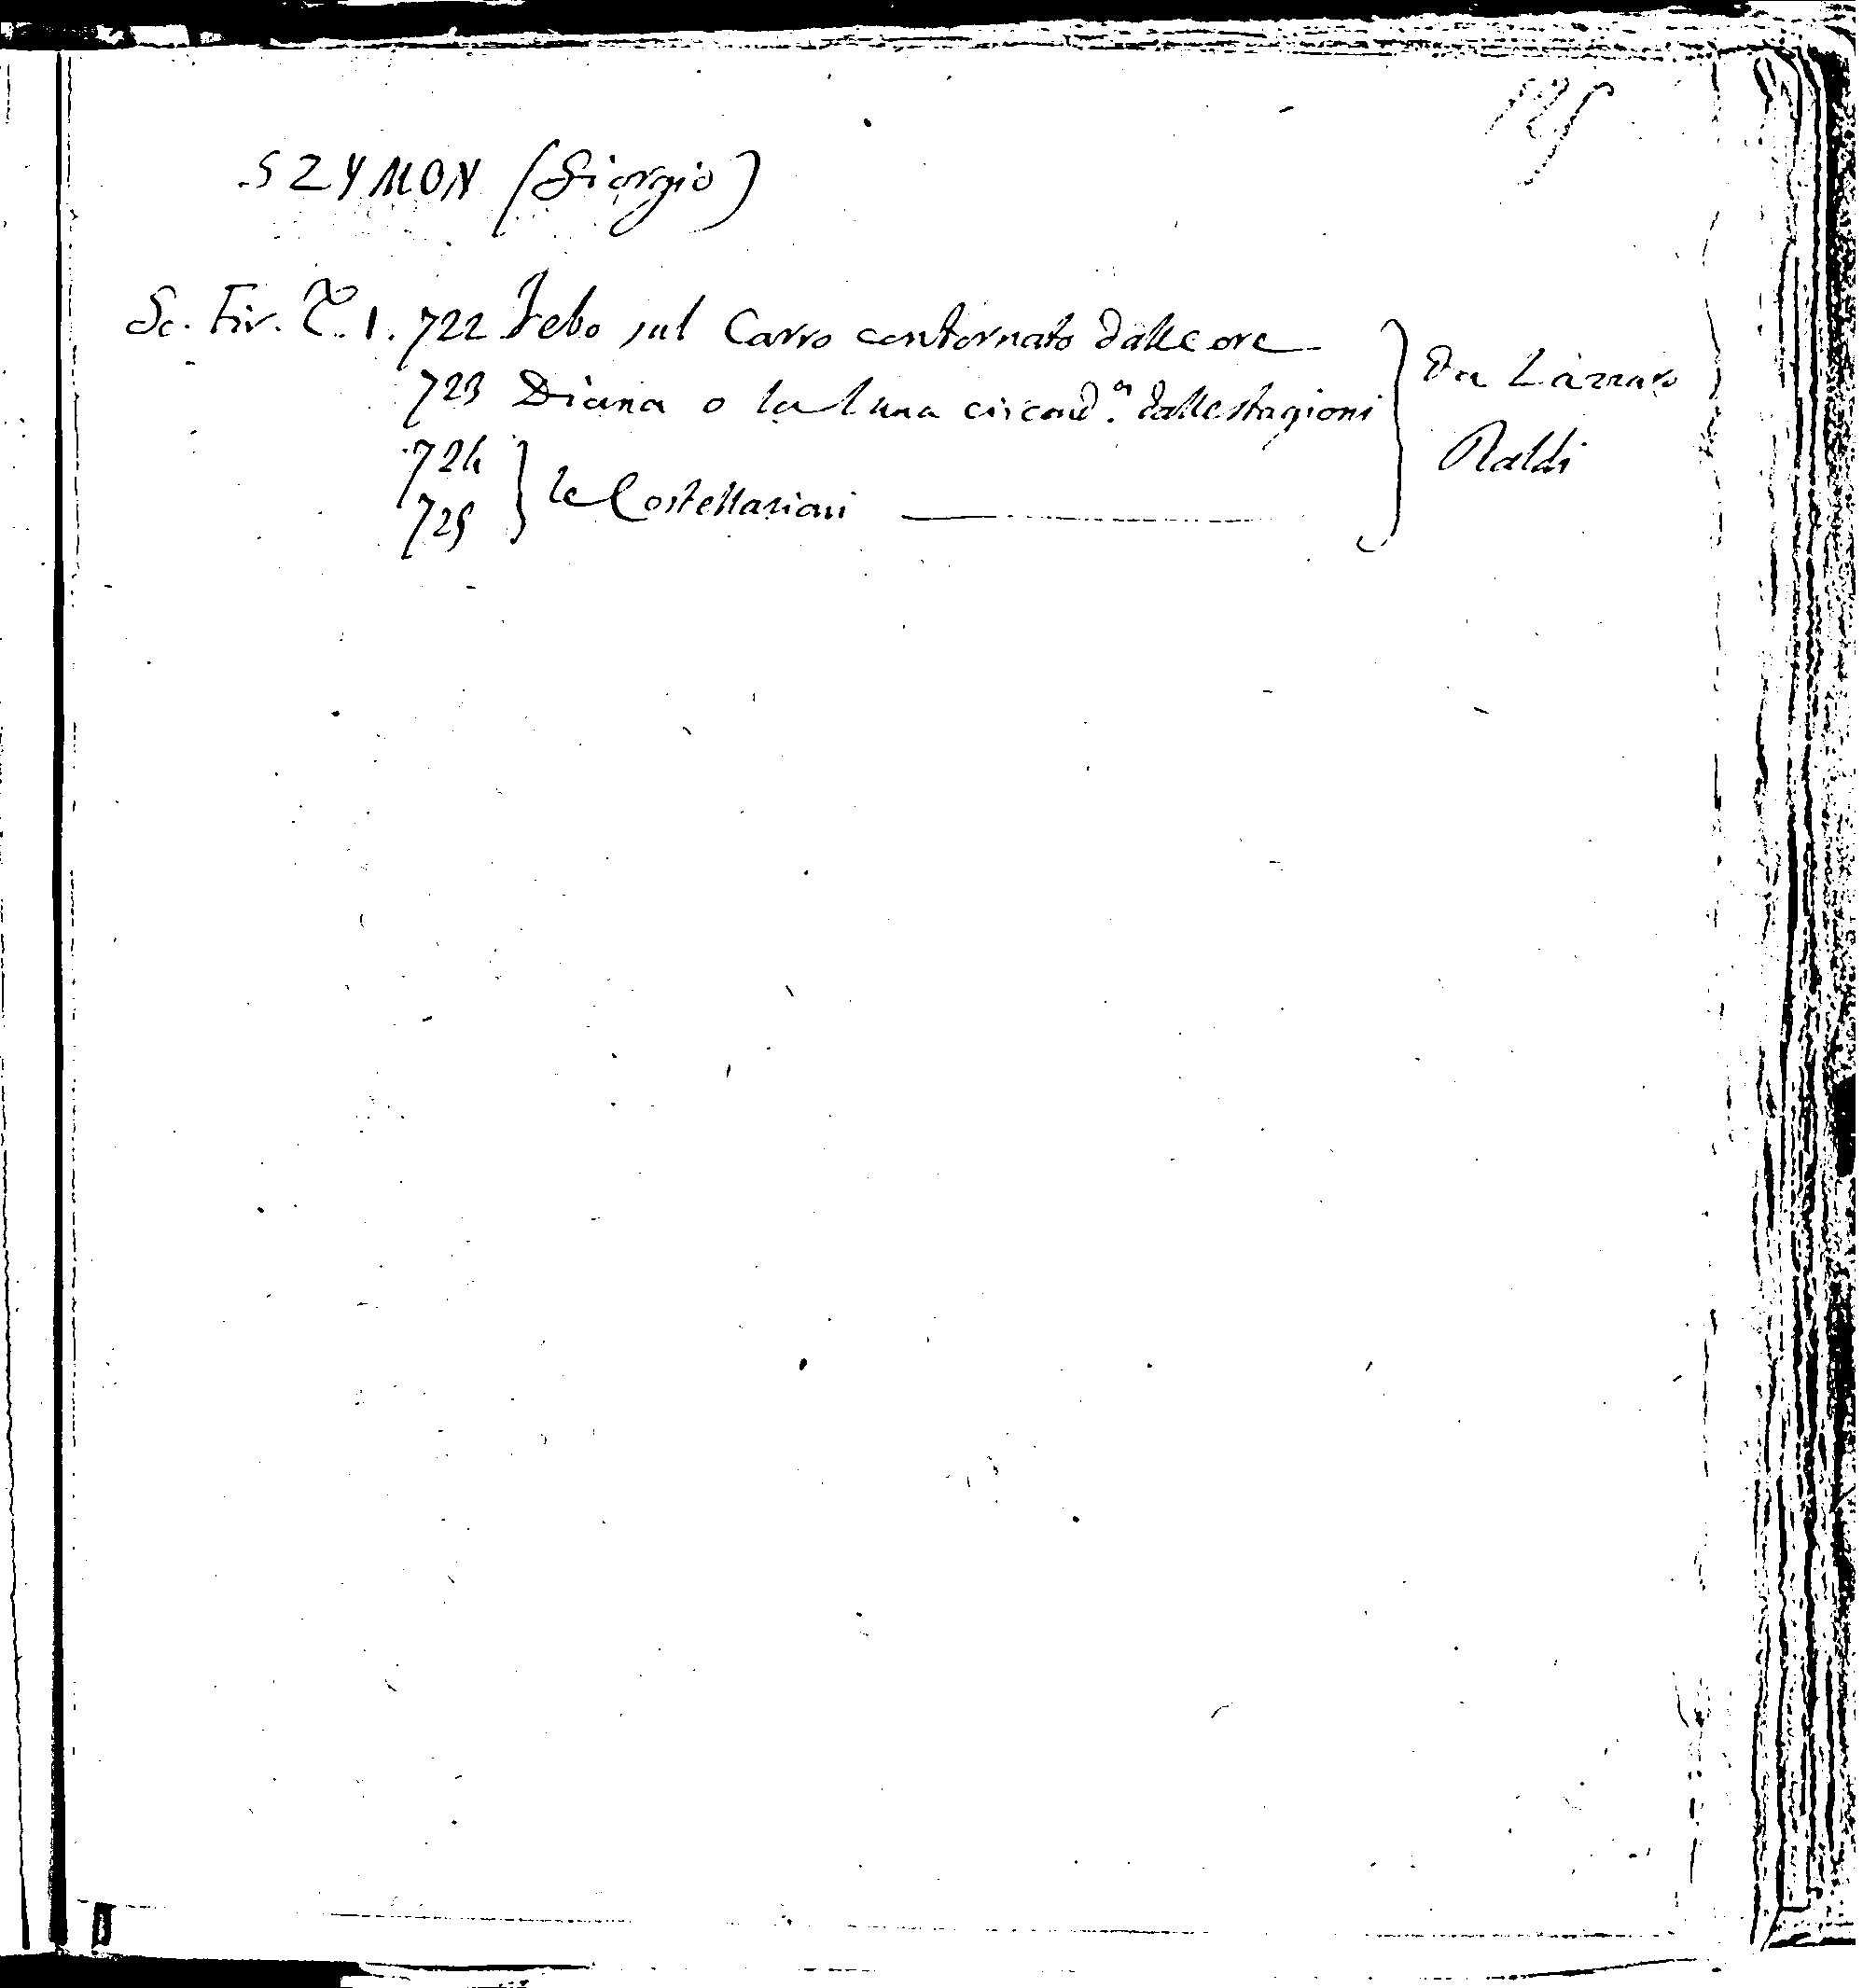 125
SZYMON (Giorgio)
Sc. Fir. T. 1. 722 Febo sul Carro contornato dalle ore
723 Diana o la luna circond.a dalle stagioni
da Lazzaro
Baldi
724
725
le Costellazioni